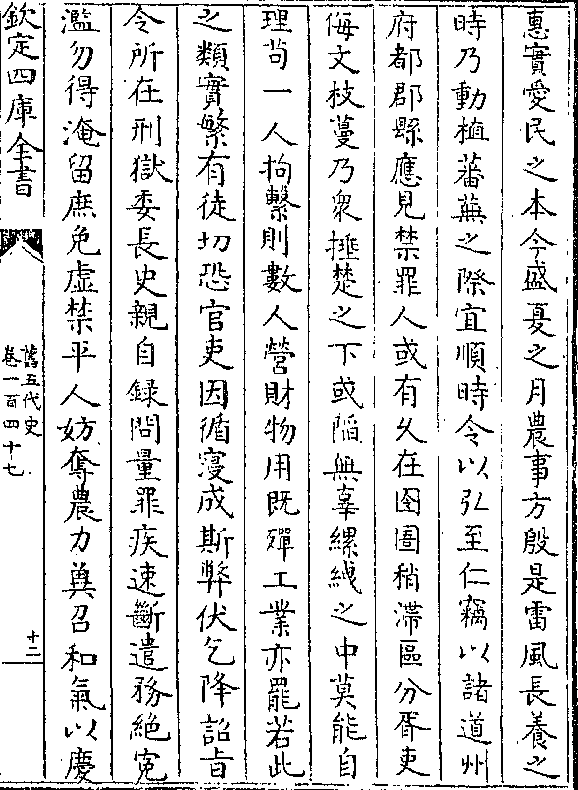 惠實愛民之本今盛夏之月農事方殷是雷風長養之
時乃動植蕃蕪之際宜順時令以弘至仁竊以諸道州
府都郡縣應見禁罪人或有久在囹圄稍滯區分胥吏
侮文枝蔓乃衆捶楚之下或陷無辜縲絏之中莫能自
理苟一人拘繫則數人營財物用既殫工業亦罷若此
之類實繁有徒切恐官吏因循寖成斯弊伏乞降詔旨
令所在刑獄委長史親自録問量罪疾速斷遣務絶寃
濫勿得淹留庶免虚禁平人妨奪農力冀召和氣以慶
欽定四庫全書
舊五代史
卷一百四十七
十二